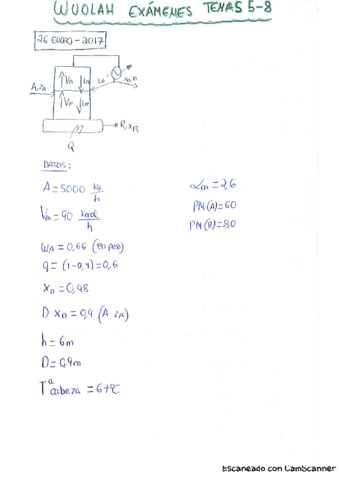 WUOLAH EXÁMENES TEMAS 5-8
26 ENERO - 2017
Vn Ln
A, zA
Vm Lm
R, xR
Q
DATOS:
A = 5000 kg/h
αm = 2,6
Vm = 90 kmol/h
PM(A) = 60
PM(B) = 80
WA = 0,66 (en peso)
q = (1-0,4) = 0,6
xD = 0,98
D xD = 0,9 (A zA)
h = 6m
D = 0,9m
Tª cabeza = 67ºC
Escaneado con CamScanner